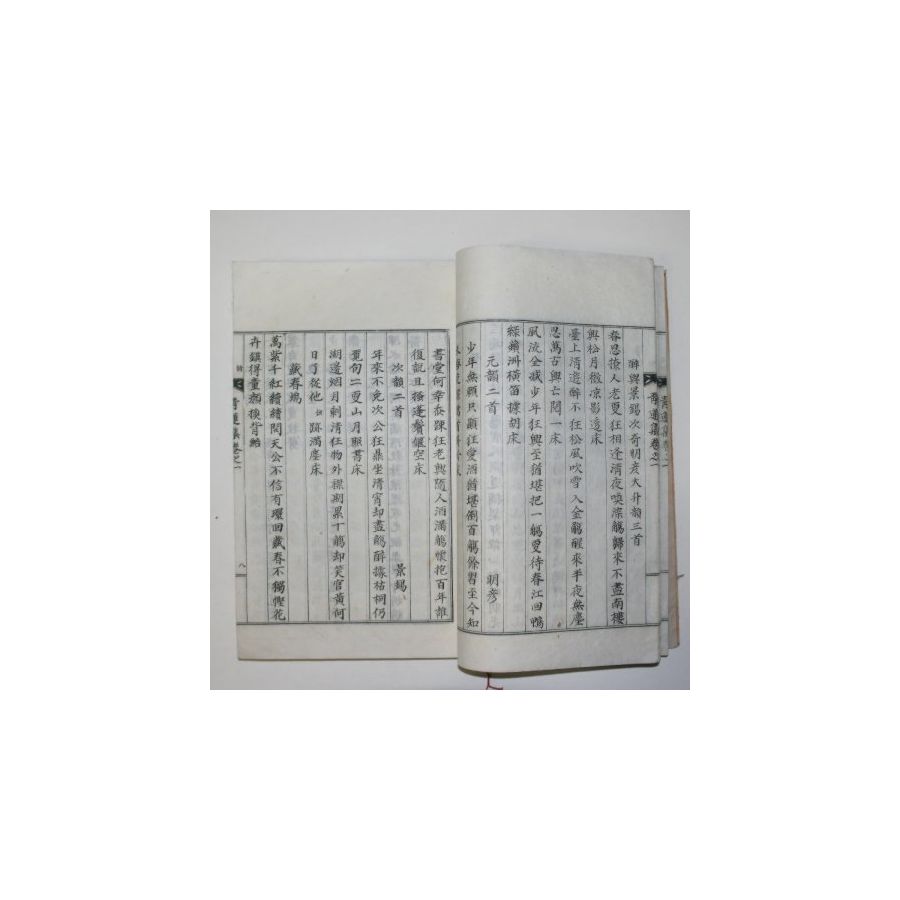 聯與景錫次奇明彦大升韻三首
春思撩人老更狂相逢清夜喚深觴歸來不盡南樓
興松月微凉影透床
臺上清遊醉不狂松風吹雪入金觴醒來半夜無塵
思萬古興亡問一床
風流全减少年狂興至猶堪把一觴更待春江回鴨
綠蘋洲橫笛據胡床
元韻二首 明彦
少年無賴只顚狂愛酒猶堪倒百觴餘習至今知
書堂何幸忝踈狂老興隨人酒滿觴懷抱百年誰
復說且搔蓬鬢偃空床
次韻二首 景錫
年來不免次公狂鼎坐清宵却盡觴醉據枯桐仍
覓句二更山月照書床
湖邊烟月剩清狂物外襟期累十觴却笑官黃何
日了從他 跡滿塵床
藏春塢
萬紫千紅續續開天公不信有環回藏春不獨慳花
卉鎭得童顔換背鮐
青蓮集卷之一
八
青蓮集卷之一